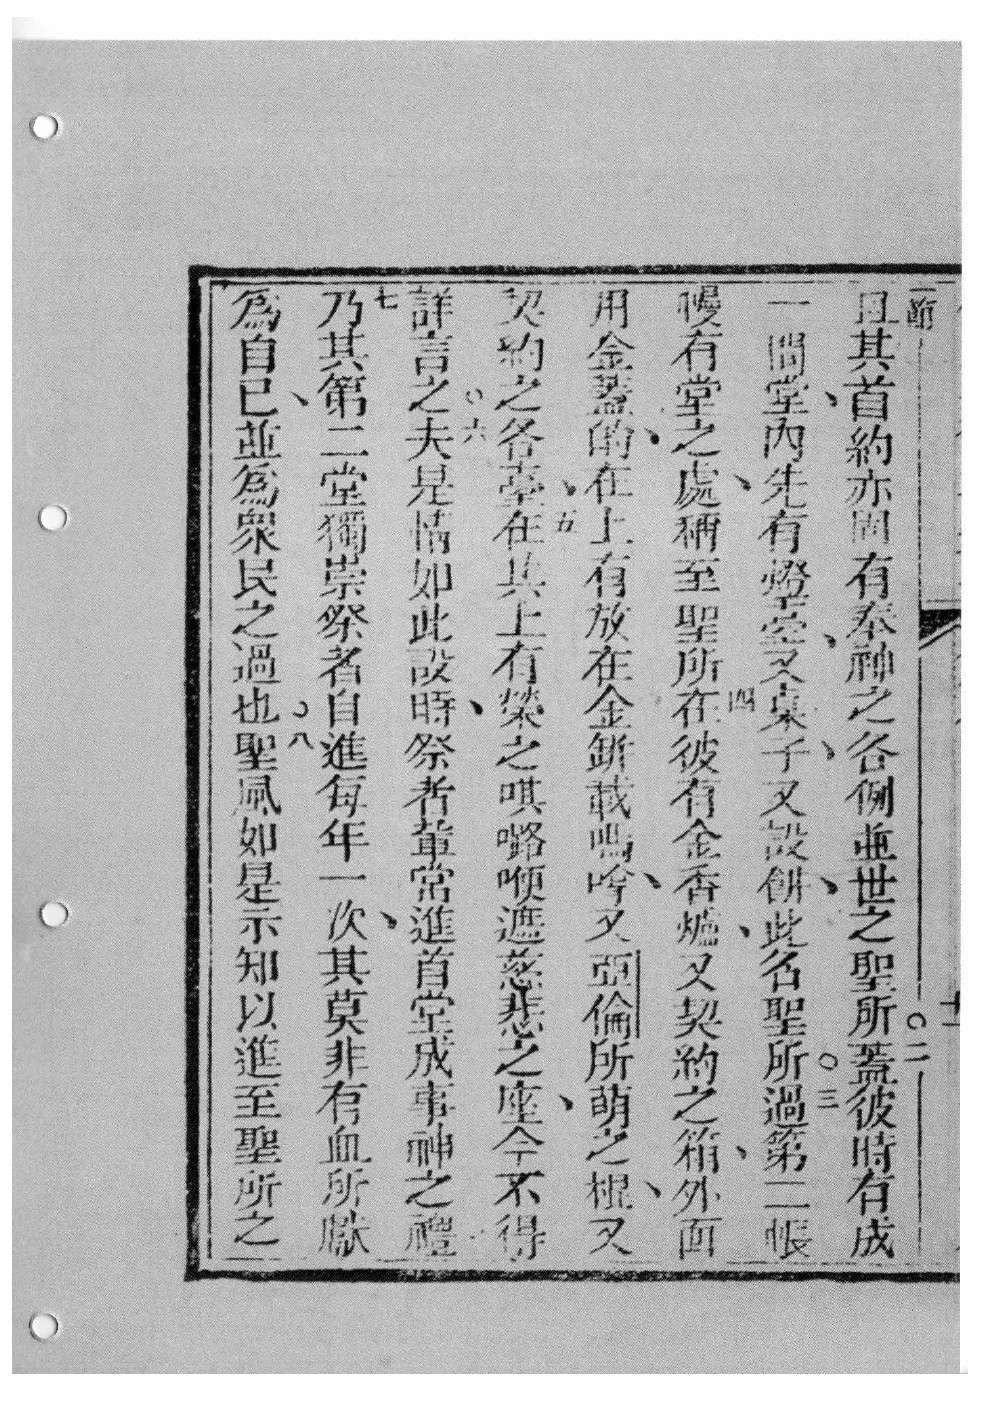 一節
且其首約亦固有奉神之各例並世之聖所蓋彼時有成
二
一間堂內先有燈臺又桌子又設餅此名聖所過第二帳
三
幔有堂之處稱至聖所在彼有金香爐又契約之箱外面
四
用金蓋的在上有放在金缾載嗎吟又亞倫所萌之棍又
契約之各臺在其上有榮之㖵嚕㖠遮慈悲之座今不得
五
詳言之夫是情如此設時祭者輩常進首堂成事神之禮
六
乃其第二堂獨崇祭者自進每年一次其莫非有血所獻
七
為自已並為眾民之過也聖風如是示知以進至聖所之
八